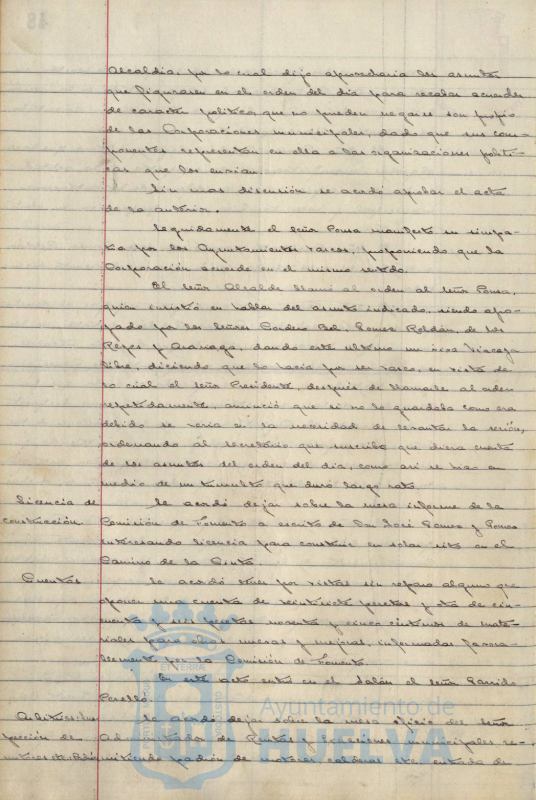 Alcaldia, por lo cual dijo aprovecharia los asuntos
que figurasen en el orden del dia para recabar acuerdos
de caracter politico, que no pueden negarse son propio
de las Corporaciones municipales, dado que sus com-
ponentes representan en ella a las organizaciones politi-
cas que los envian.
Sin mas discusión se acordó aprobar el acta
de la anterior.
Seguidamente el señor Ponsa manifestó su simpa-
tia por los Ayuntamientos vascos, proponiendo que la
Corporación acuerde en el mismo sentido.
El señor Alcalde llamó al orden al señor Ponsa,
quien insistió en hablar del asunto indicado, siendo apo-
yado por los señores Cordero Bel, Gomez Roldán, de los
Reyes y Aranaga, dando este ultimo un viva Vizcaya
libre, diciendo que lo hacia por ser vasco, en vista de
lo cual el señor Presidente, despues de llamarle al orden
repetidamente, anunció que si no lo guardaba como era
debido se veria en la necesidad de levantar la sesión,
ordenando al secretario que suscribe que diera cuenta
de los asuntos del orden del dia, como asi se hizo en
medio de un tumulto que duró largo rato.
Licencia de
construcción
Se acordó dejar sobre la mesa informe de la
Comisión de Fomento a escrito de Don José Gomez y Gomez
interesando licencia para construir en solar sito en el
Camino de la Cinta.
Cuentas
Se acordó tener por vistas sin reparo alguno que
oponer una cuenta de veintiocho pesetas y otra de cin-
cuenta y seis pesetas noventa y cinco centimos de mate-
riales para obras nuevas y mejoras, informadas favora-
blemente por la Comisión de Fomento.
En este acto entró en el salón el señor Garrido
Perelló.
pección de
Se acordó dejar sobre la mesa oficio del señor
Administrador de Rentas y Exacciones municipales re-
mitiendo padrón de motores, calderas etc. entrada de
Ayuntamiento de
HUELVA